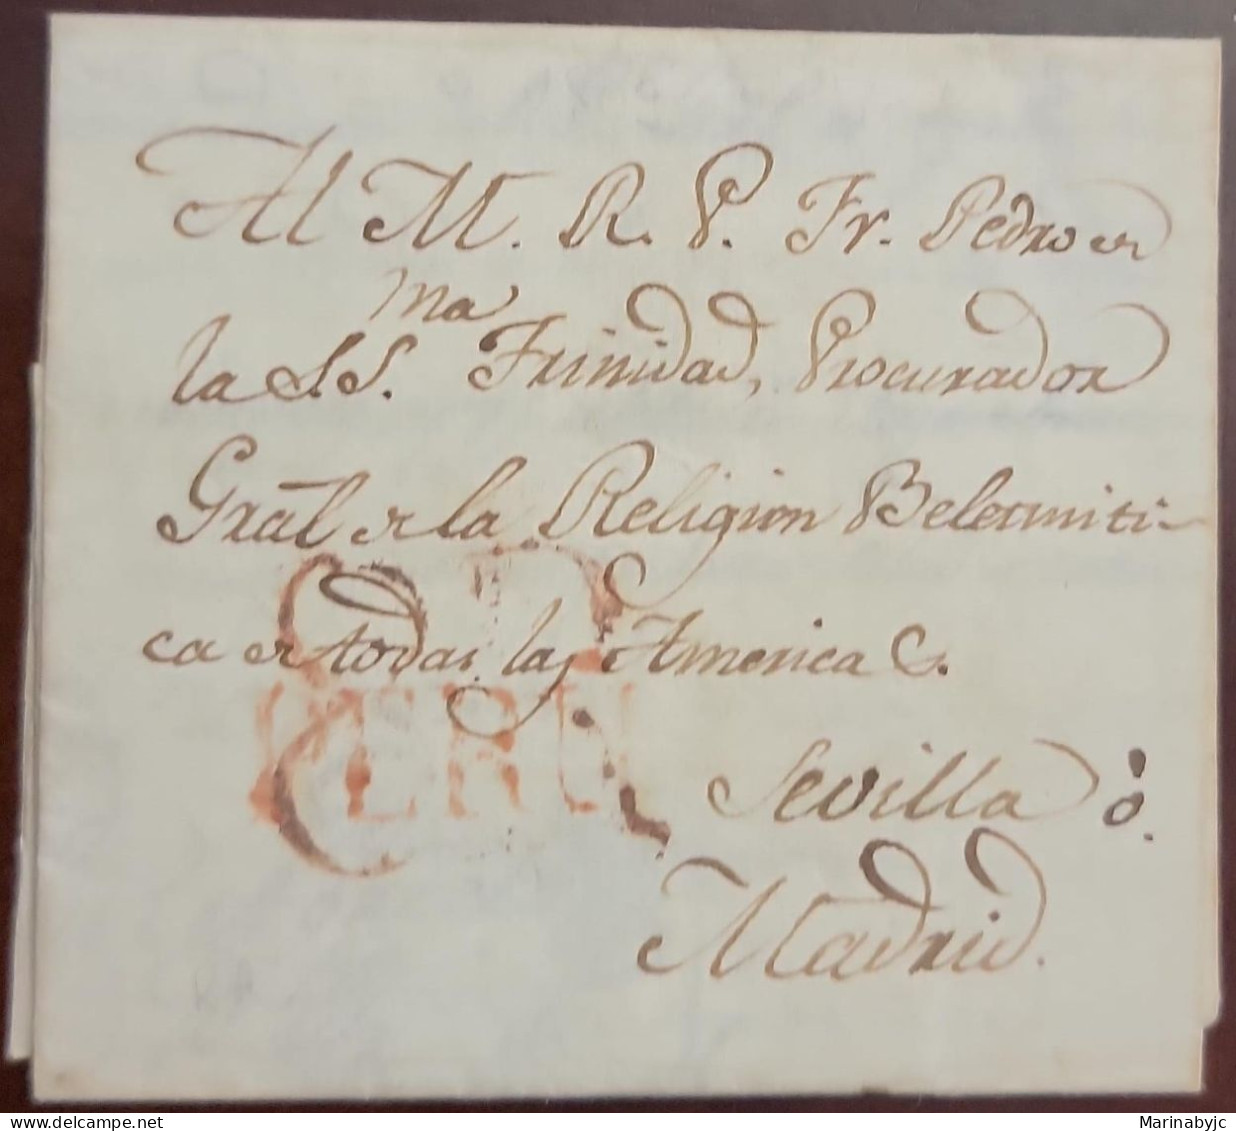 Al M. R. P. Fr. Pedro de
la SS.ma Trinidad, Procurador
Gral de la Religion Belermiti-
ca de todas las Americas.
PERU
Sevilla ó
Madrid.
Marinabyjc